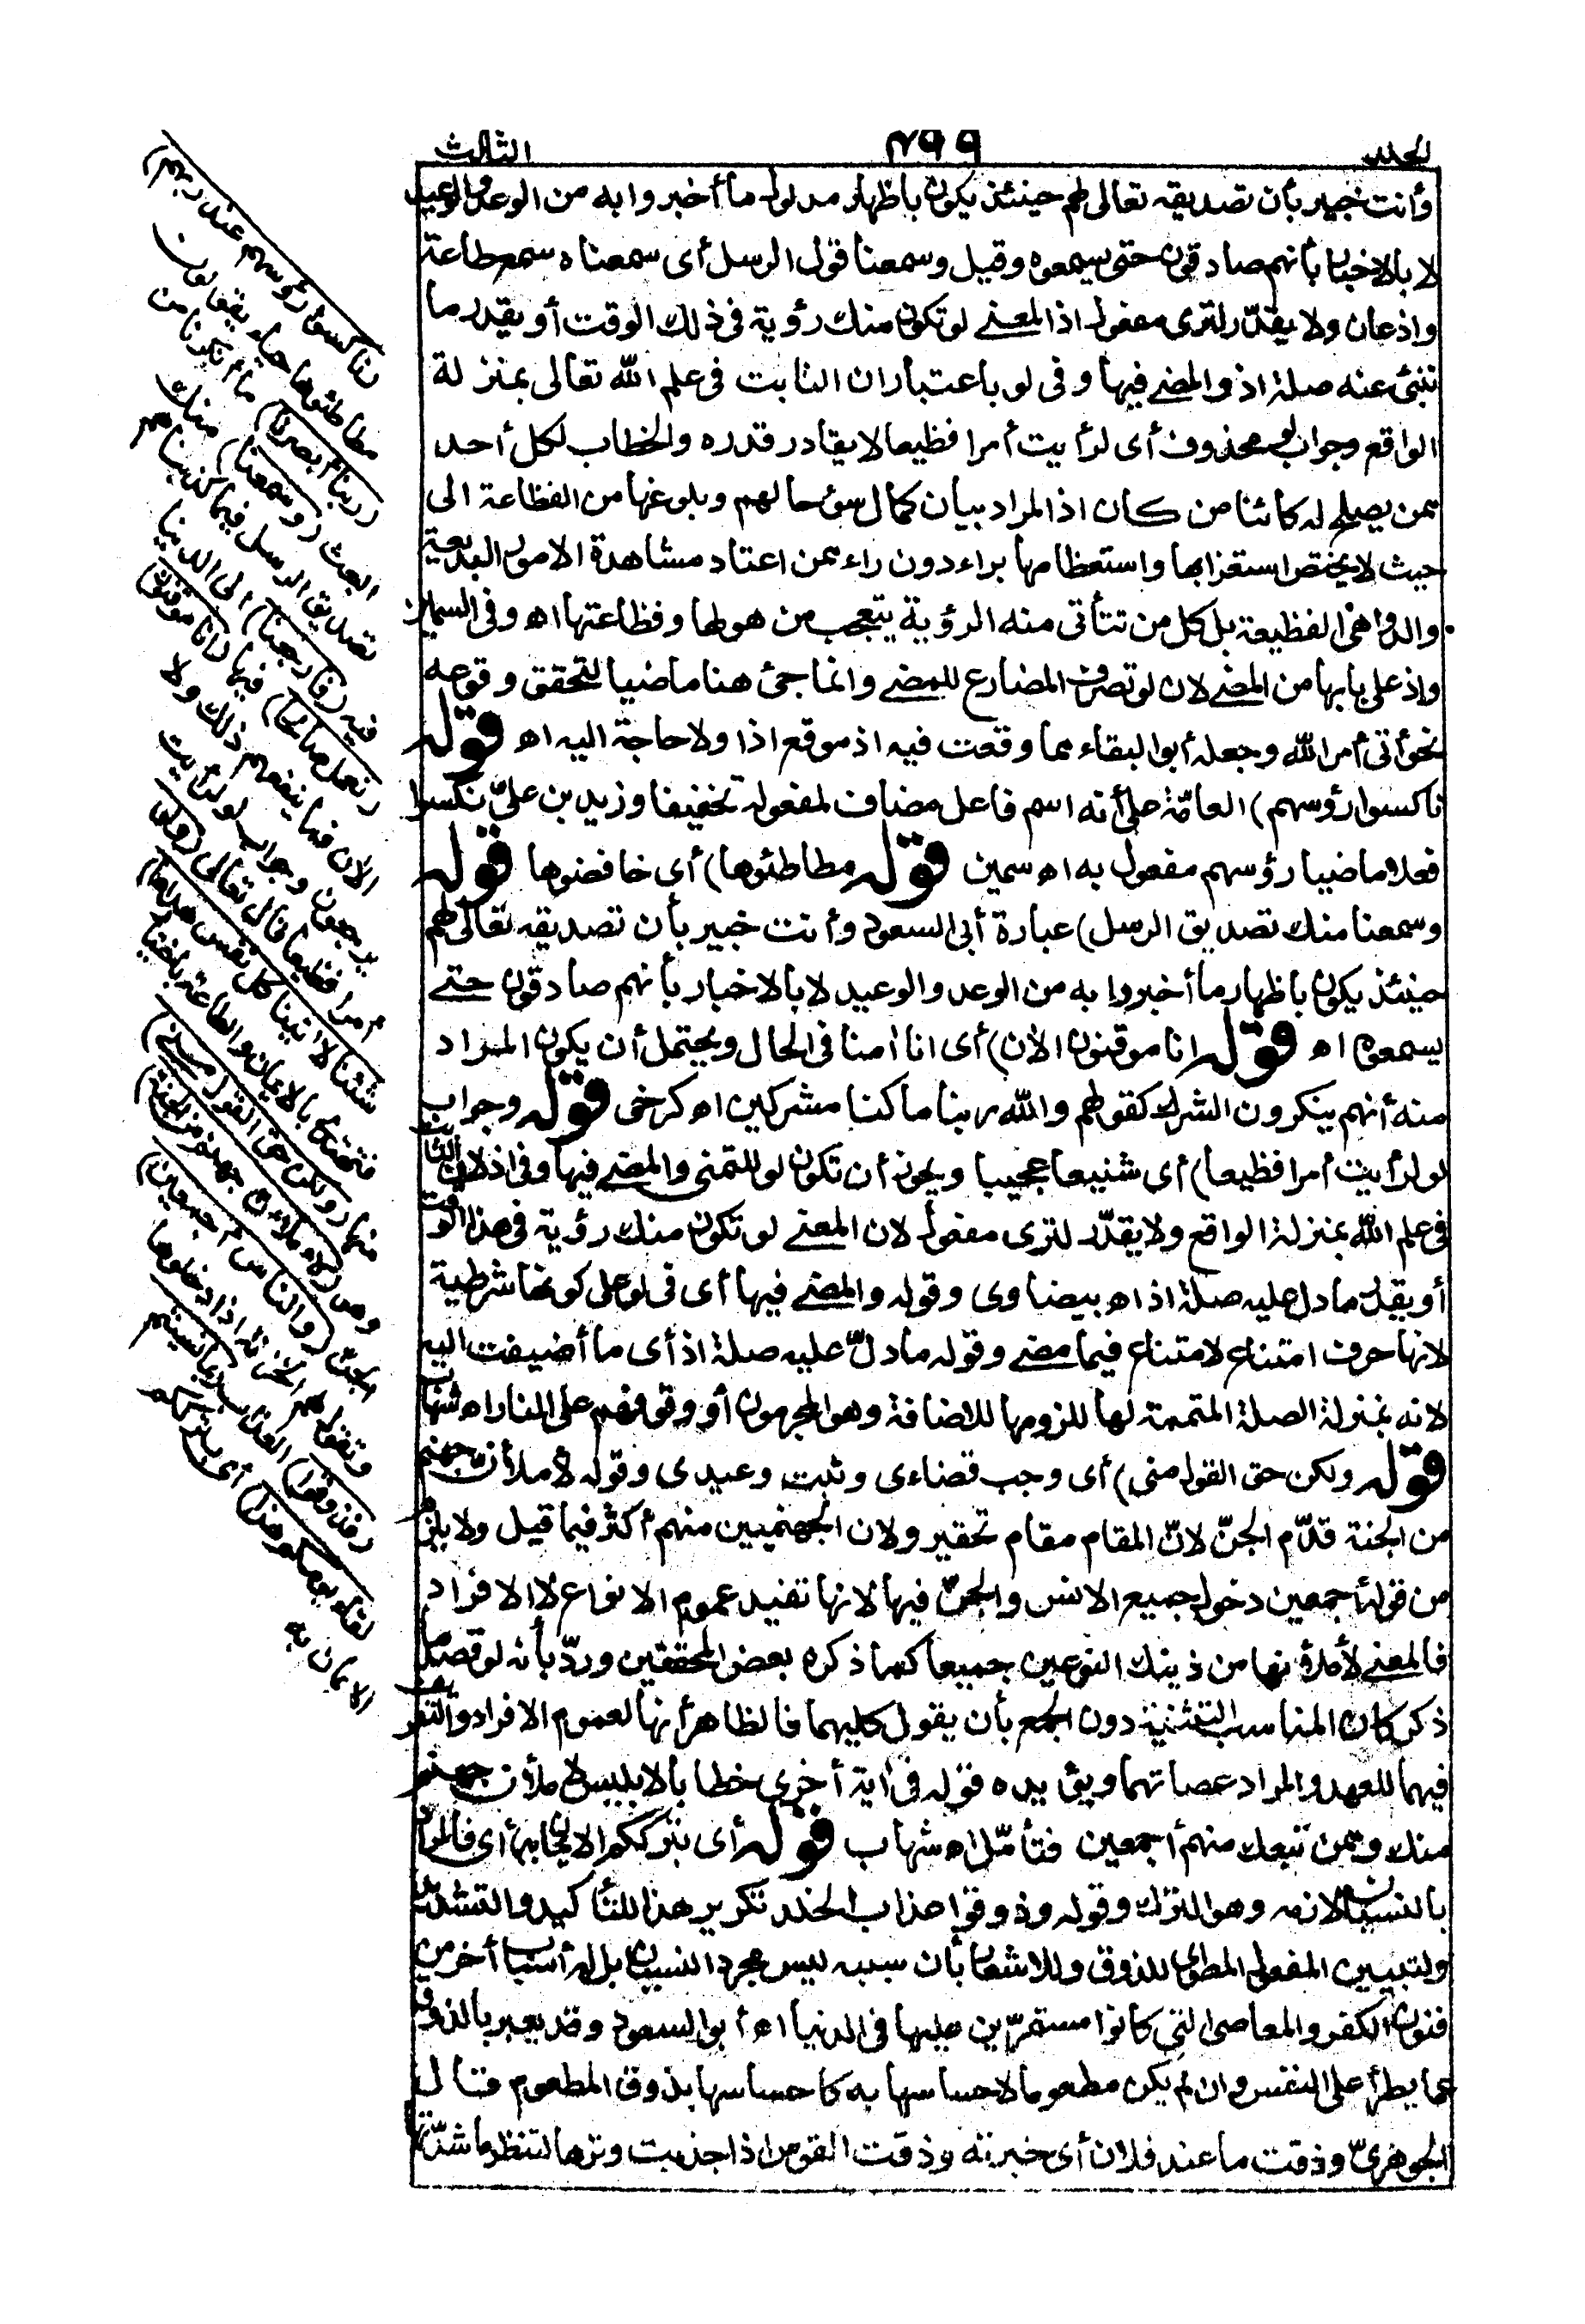 المجلد ٧٩٩ الثالث
وأنت خبير بأن تصديقه تعالى لهم حينئذ يكون باظهار مدلول ما أخبروا به من الوعد والوعيد
لا بالاخبار بأنهم صادقون حتى يسمعوه وقيل وسمعنا قول الرسل أى سمعناه سمع طاعة
واذعان ولا يقدّر لترى مفعول اذ المعنى لو تكون منك رؤية فى ذلك الوقت أو يقدر ما
تنبئ عنه صلة اذ والمضى فيها وفى لو باعتبار ان الثابت فى علم الله تعالى بمنزلة
الواقع وجواب لو محذوف أى لرأيت أمرا فظيعا لا يقادر قدره والخطاب لكل أحد
ممن يصلح له كائنا من كان اذ المراد بيان كمال سوء حالهم وبلوغها من الفظاعة الى
حيث لا يختص استغرابها واستعظامها براء دون راء ممن اعتاد مشاهدة الامور البديعة
والدواهى الفظيعة بل كل من تتأتى منه الرؤية يتعجب من هولها وفظاعتها اه وفى السمين
واذ على بابها من المضى لان لو تصرف المضارع للمضى وانما جئ هنا ماضيا لتحقق وقوعه
نحو أتى أمر الله وجعله أبو البقاء مما وقعت فيه اذ موقع اذا ولا حاجة اليه اه قوله
ناكسوا رؤسهم) العامّة على أنه اسم فاعل مضاف لمفعوله تخفيفا وزيد بن علىّ نكسوا
فعلا ماضيا رؤسهم مفعول به اه سمين قوله مطاطئوها) أى خافضوها قوله
وسمعنا منك تصديق الرسل) عبارة أبى السعود وأنت خبير بأن تصديقه تعالى لهم
حينئذ يكون باظهار ما أخبروا به من الوعد والوعيد لا بالاخبار بأنهم صادقون حتى
يسمعوه اه قوله انا موقنون الآن) أى انا آمنا فى الحال ويحتمل أن يكون المراد
منه أنهم ينكرون الشرك كقولهم والله ربنا ما كنا مشركين اه كرخى قوله وجواب
لو لرأيت أمرا فظيعا) أى شنيعا عجيبا ويجوز أن تكون لو للتمنى والمضى فيها وفى اذ لان الثابت
فى علم الله بمنزلة الواقع ولا يقدّر لترى مفعول لان المعنى لو تكون منك رؤية فى هذا الوقت
أو يقدر ما دل عليه صلة اذ اه بيضاوى وقوله والمضى فيها أى فى لو على كونها شرطية
لانها حرف امتناع لامتناع فيما مضى وقوله ما دلّ عليه صلة اذ أى ما أضيفت اليه
لانه بمنزلة الصلة المتممة لها للزومها للاضافة وهو المجرمون أو وقوفهم على النار اه شهاب
قوله ولكن حق القول منى) أى وجب قضاءى وثبت وعيدى وقوله لأملأن جهنم
من الجنة قدّم الجنّ لانّ المقام مقام تحقير ولان الجهنميين منهم أكثر فيما قيل ولا يلزم
من قوله أجمعين دخول جميع الانس والجنّ فيها لانها تفيد عموم الانواع لا الافراد
فالمعنى لأملأنها من ذينك النوعين جميعا كما ذكره بعض المحققين وردّ بأنه لو قصد ما
ذكر كان المناسب التثنية دون الجمع بأن يقول كليهما فالظاهر أنها لعموم الافراد والتعريف
فيهما للعهد والمراد عصاتهما ويؤيده قوله فى آية أخرى خطابا لابليس لأملأن جهنم
منك وممن تبعك منهم أجمعين فتأمّل اه شهاب قوله أى بترككم الايمان به) أى فالمراد
بالنسيان لازمه وهو الترك وقوله وذوقوا عذاب الخلد تكرير هذا للتأكيد والتشديد
ولتبيين المفعول المطوى للذوق وللاشعار بأن سببه ليس مجرد النسيان بل له أسباب أخر من
فنون الكفر والمعاصى التى كانوا مستمرّين عليها فى الدنيا اه أبو السعود وقد يعبر بالذوق
عما يطرأ على النفس وان لم يكن مطعوما لاحساسها به كاحساسها بذوق المطعوم قال
الجوهرىّ وذقت ما عند فلان أى خبرته وذقت القوس اذا جذبت وترها لتنظر ما شدّتها
(ناكسوا رؤسهم عند ربهم)
مطاطئوها حياء يقولون
(ربنا أبصرنا) ما أنكرنا من
البعث (وسمعنا) منك
تصديق الرسل فيما كذبناهم
فيه (فارجعنا) الى الدنيا
(نعمل صالحا) فيها (انا موقنون)
الآن فما ينفعهم ذلك ولا
يرجعون وجواب لو لرأيت
أمرا فظيعا قال تعالى (ولو
شئنا لآتينا كل نفس هداها)
فتهتدى بالايمان والطاعة باختيار
منها (ولكن حق القول منى)
وهو (لأملأن جهنم من الجنة)
الجنّ (والناس أجمعين)
وتقول لهم الخزنة اذا دخلوها
(فذوقوا) العذاب (بما نسيتم
لقاء يومكم هذا) أى بترككم
الايمان به